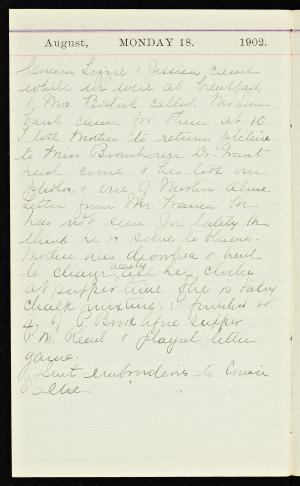 August, MONDAY 18. 1902.
Cousin Lizzie & Jessica came
while we were at breakfast
& Mrs. Bostick called. Mr. Sam
came for them at 10.
I took Mother to return picture
to Miss Dr. Grant
had come & he took our
photos & one of Mother alone.
Letter from Mr. Francis. He
has not seen Joe lately &
thinks he is to blame.
Mother has diarrhea & had
to change nearly all her clothes
at supper time. She is taking
chalk mixture. I finished
of Book after supper
P.M. Read & played letter
game.
Sent embroideries to Cousin
Sallie